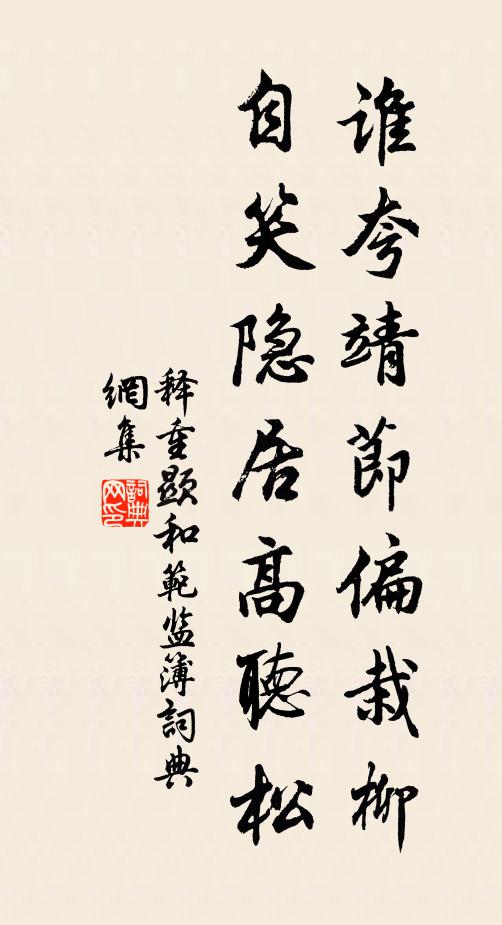 谁夸靖節偏栽柳
自笑隐居高聽松
释重顯和範监簿詞典
網集
詞典
网印